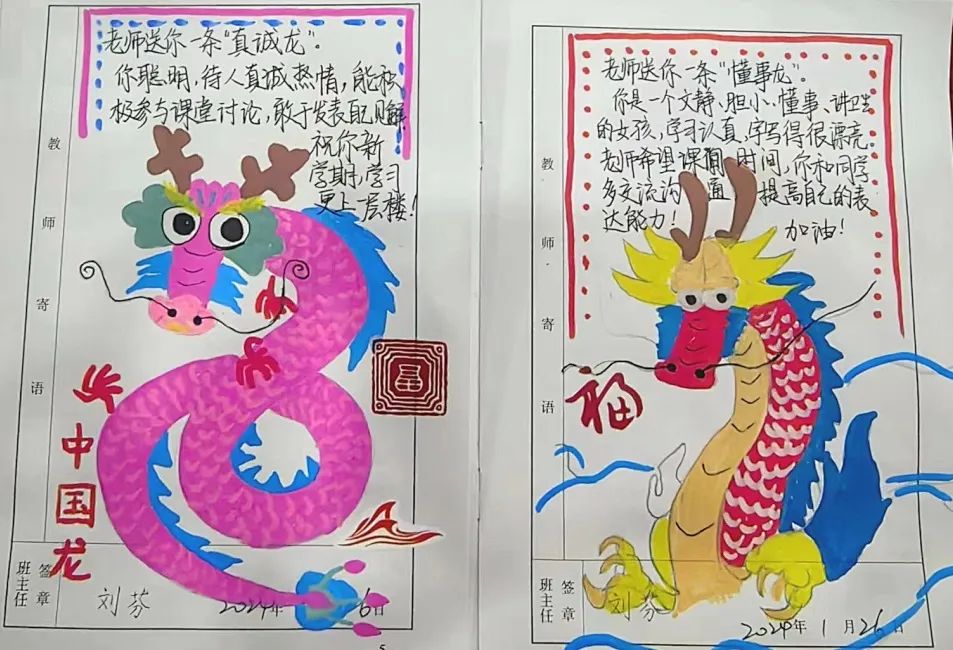 老师送你一条"真诚龙"。
你聪明，待人真诚热情，能积
极参与课堂讨论，敢于发表见解
祝你新
学期，学习
更上一层楼！
教师寄语
中国龙
班主任
签章
刘芬
2024年
26日
5
老师送你一条"懂事龙"。
你是一个文静、胆小、懂事、讲卫生
的女孩，学习认真，字写得很漂亮。
老师希望课间时间，你和同学
多交流沟通 提高自己的表
达能力！
加油！
教师寄语
福
班主任
签章
刘芬
2024年1月26日